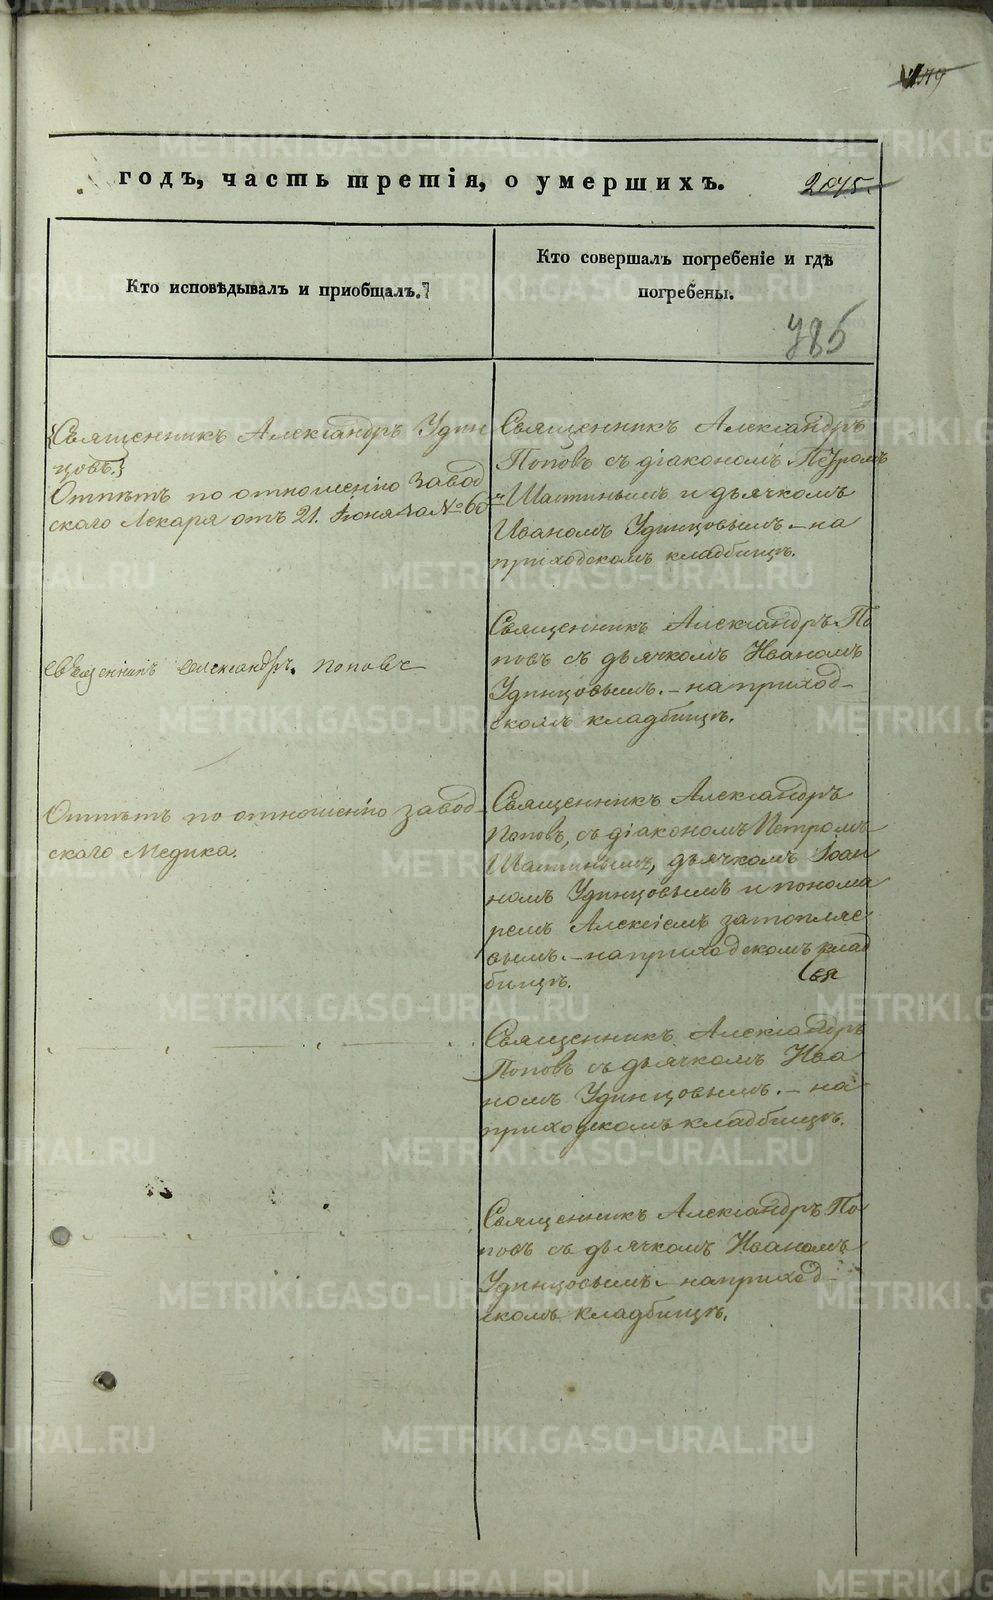 годъ, часть третія, о умершихъ.
2045.
Кто исповѣдывалъ и приобщалъ.
Кто совершалъ погребеніе и гдѣ
погребены.
785
Священникъ Александръ Удин
цовъ.
Отпѣтъ по отношенію Завод
скаго Лекаря отъ 21. Іюня за №
Священникъ Александръ
Поповъ съ діакономъ Петромъ
Шатинымъ и дьячкомъ
Иваномъ Удинцовымъ. – на
приходскомъ кладбищѣ.
Священникъ Александръ Поповъ
Священникъ Александръ По
повъ съ дьячкомъ Иваномъ
Удинцовымъ. – на приход–
скомъ кладбищѣ.
Отпѣтъ по отношенію завод–
скаго Медика.
Священникъ Александръ
Поповъ, съ діакономъ Петромъ
Шатинымъ, дьячкомъ Іоан
номъ Удинцовымъ и понома
ремъ Алексіемъ
вымъ. – на приходскомъ клад
бищѣ.
Священникъ Александръ
Поповъ съ дьячкомъ Ива
номъ Удинцовымъ. – на
приходскомъ кладбищѣ.
Священникъ Александръ По
повъ съ дьячкомъ Иваномъ
Удинцовымъ. – на приход–
скомъ кладбищѣ.
METRIKI.GASO-URAL.RU